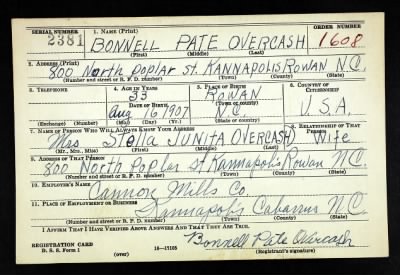 SERIAL NUMBER 1. NAME (Print) ORDER NUMBER
2381 BONNELL PATE OVERCASH 1608
(First) (Middle) (Last)
2. ADDRESS (Print)
800 North Poplar St. KANNAPOLIS ROWAN N.C.
(Number and street or R. F. D. number) (Town) (County) (State)
3. TELEPHONE 4. AGE IN YEARS 5. PLACE OF BIRTH 6. COUNTRY OF CITIZENSHIP
33 ROWAN
DATE OF BIRTH (Town or county)
Aug 16 1907 N.C. U.S.A.
(Exchange) (Number) (Mo.) (Day) (Yr.) (State or country)
7. NAME OF PERSON WHO WILL ALWAYS KNOW YOUR ADDRESS 8. RELATIONSHIP OF THAT PERSON
Mrs. Stella JUNITA OVERCASH Wife
(Mr., Mrs., Miss) (First) (Middle) (Last)
9. ADDRESS OF THAT PERSON
800 North Poplar St Kannapolis Rowan N.C.
(Number and street or R. F. D. number) (Town) (County) (State)
10. EMPLOYER'S NAME
Cannon Mills Co.
11. PLACE OF EMPLOYMENT OR BUSINESS
Kannapolis Cabarrus N.C.
(Number and street or R. F. D. number) (Town) (County) (State)
I AFFIRM THAT I HAVE VERIFIED ABOVE ANSWERS AND THAT THEY ARE TRUE.
Bonnell Pate Overcash
REGISTRATION CARD
D. S. S. Form 1 (over) 16—17105 (Registrant's signature)